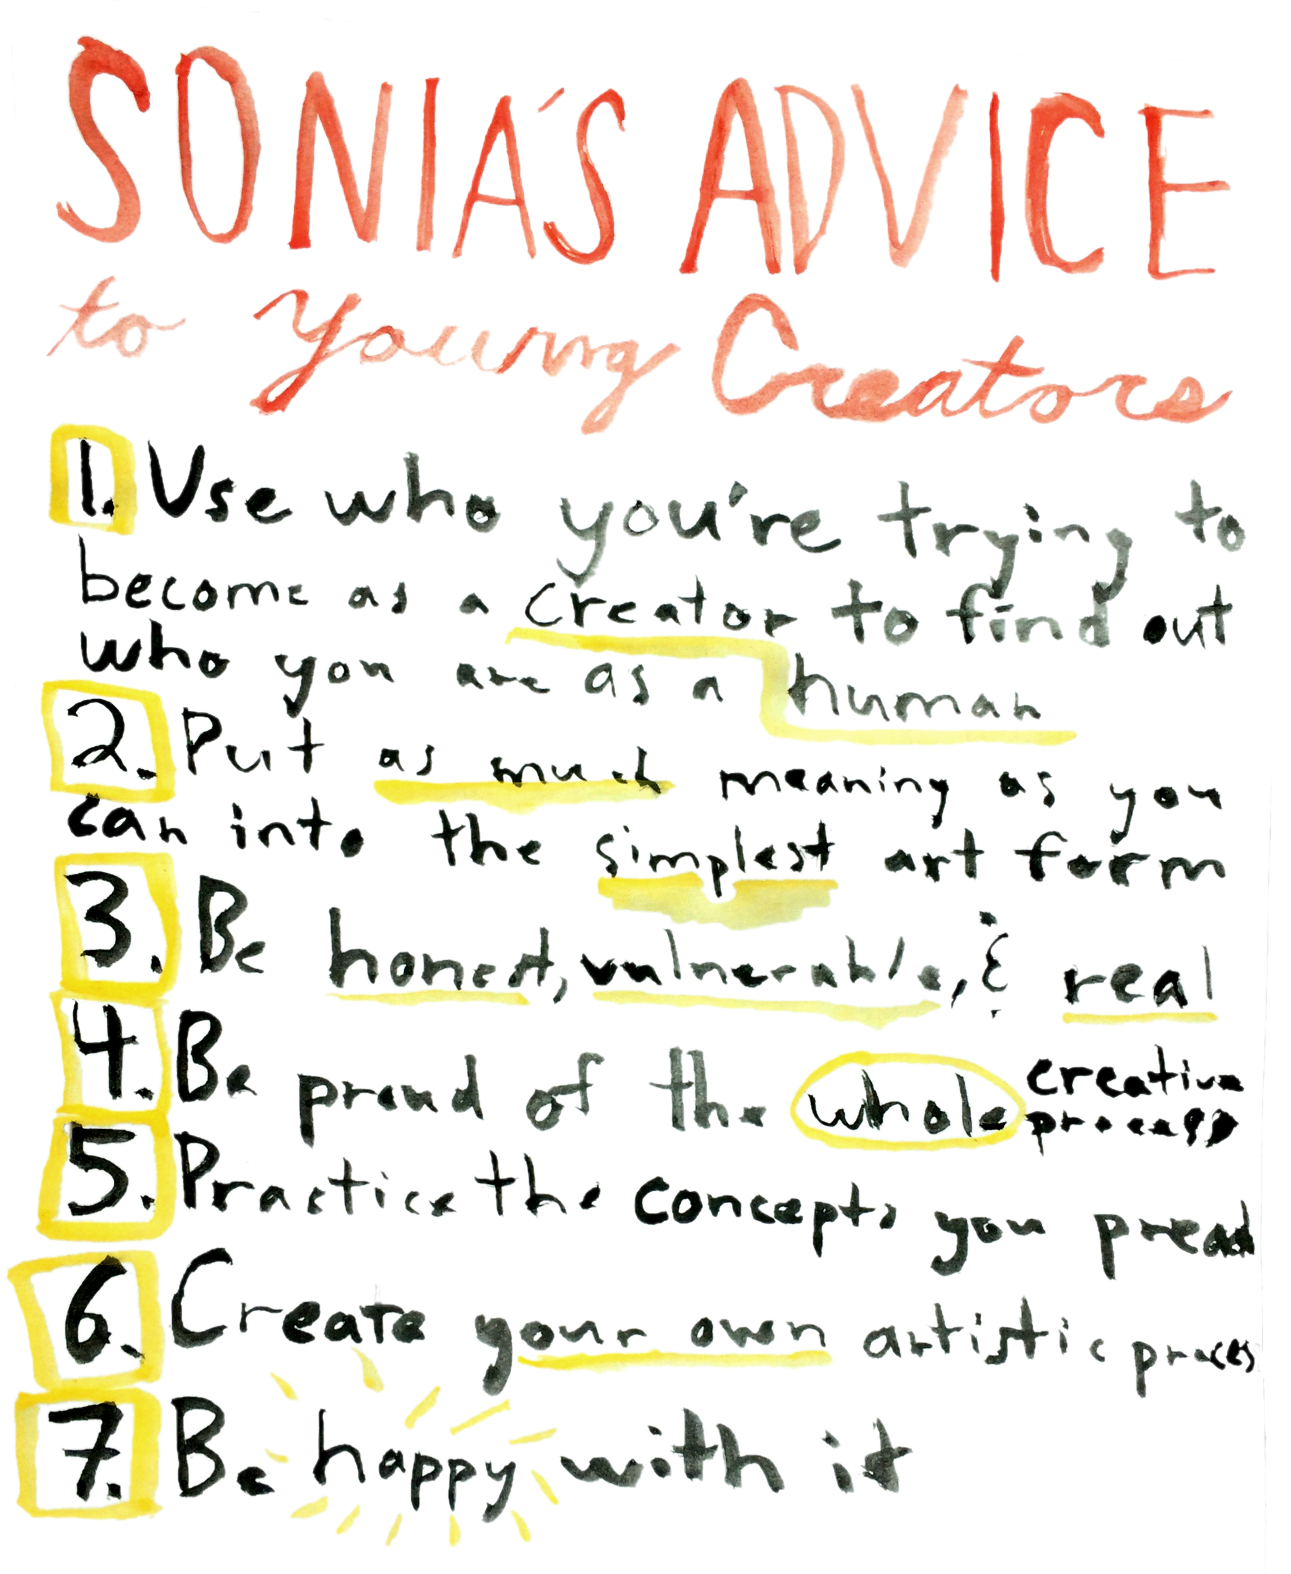 SONIA'S ADVICE
to Young Creators
1. Use who you're trying to
become as a creator to find out
who you are as a human
2. Put as much meaning as you
can into the simplest art form
3. Be honest, vulnerable, & real
4. Be proud of the whole creative
process
5. Practice the concepts you preach
6. Create your own artistic process
7. Be happy with it